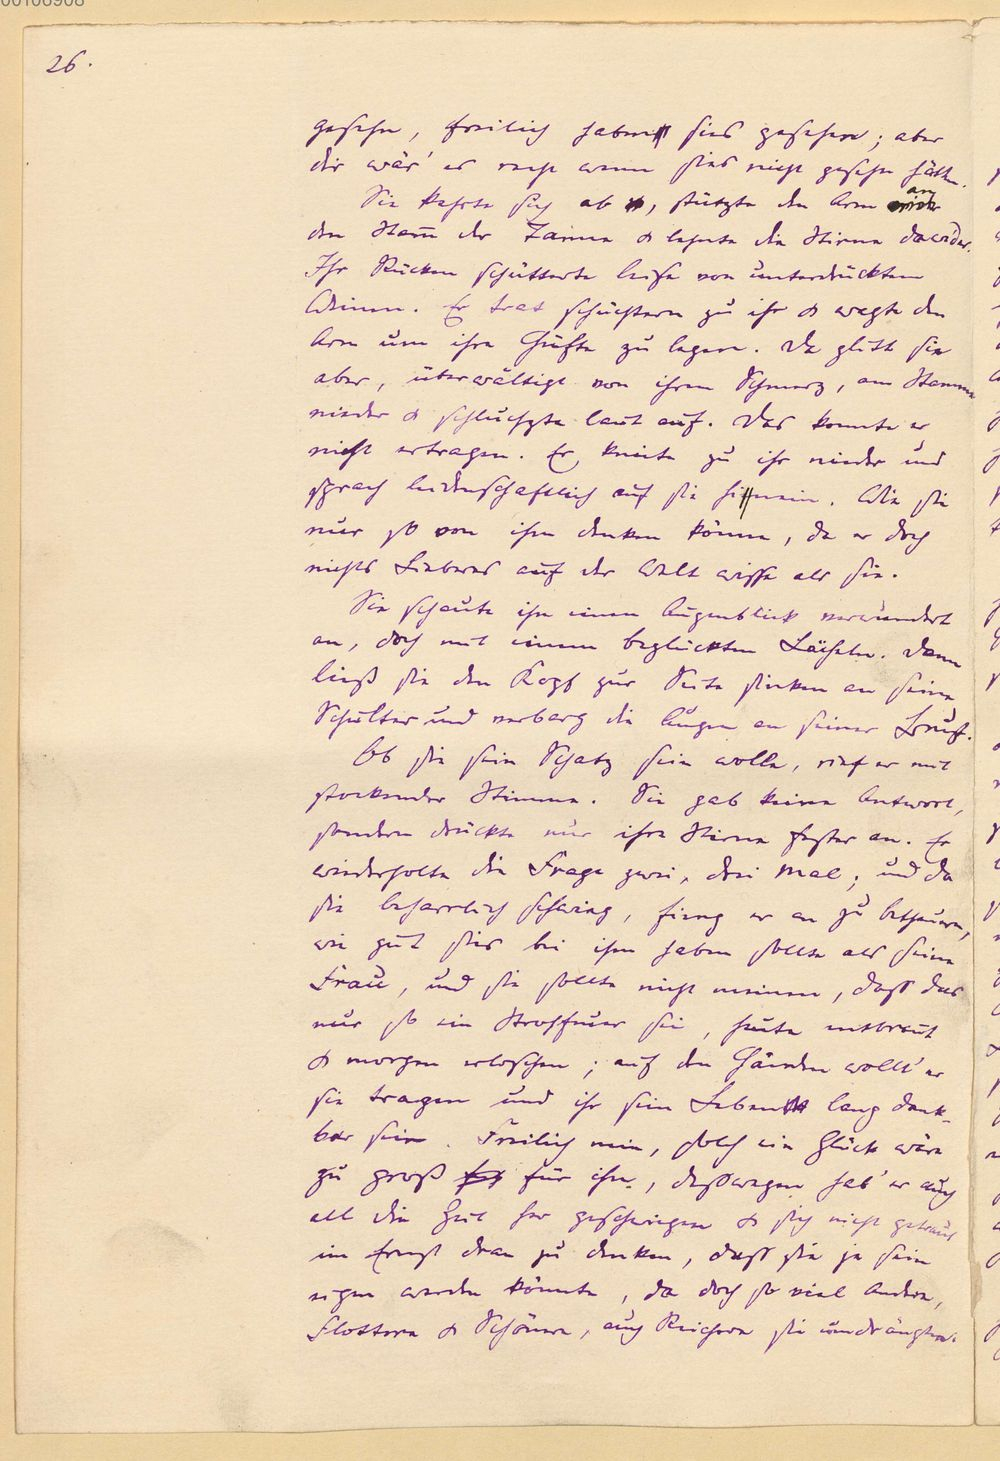 26.
gesehn, freilich haben sies gesehen; aber
dir wär' es recht wenn sies nicht gesehn hätten.
Sie kehrte sich ab, stützte den Arm an
den Stam̅ der Tanne & lehnte die Stirne dawider.
Ihr Rücken schütterte leise von unterdrücktem
Weinen. Er trat schüchtern zu ihr & wagte den
Arm um ihre Hüfte zu legen. Da glitt sie
aber, überwältigt von ihrem Schmerz, am Stamme
nieder & schluchzte laut auf. Das konnte er
nicht ertragen. Er kniete zu ihr nieder und
sprach leidenschaftlich auf sie hinein. Wie sie
nur so von ihm denken könne, da er doch
nichts Lieberes auf der Welt wisse als sie.
Sie schaute ihn einen Augenblick verwundert
an, doch mit einem beglückten Lächeln. Dann
ließ sie den Kopf zur Seite sinken an seine
Schulter und verbarg die Augen an seiner Brust.
Ob sie sein Schatz sein wolle, rief er mit
stockender Stimme. Sie gab keine Antwort,
sondern drückte nur ihre Stirne fester an. Er
wiederholte die Frage zwei, drei Mal; und da
sie beharrlich schwieg, fieng er an zu betheuern,
wie gut sies bei ihm haben sollte als seine
Frau, und sie sollte nicht meinen, dass das
nur so ein Strohfeuer sei, heute entbrannt
& morgen erloschen; auf den Händen wollt' er
sie tragen und ihr sein Leben lang dank-
bar sein. Freilich nein, solch ein Glück wäre
zu groß für ihn, desswegen hab' er auch
all die Zeit her geschwiegen & sich nicht getraut
im Ernst dran zu denken, dass sie je sein
eigen werden könnte, da doch so viel Andere,
Flottere & Schönere, auch Reichere sie umdrängten.